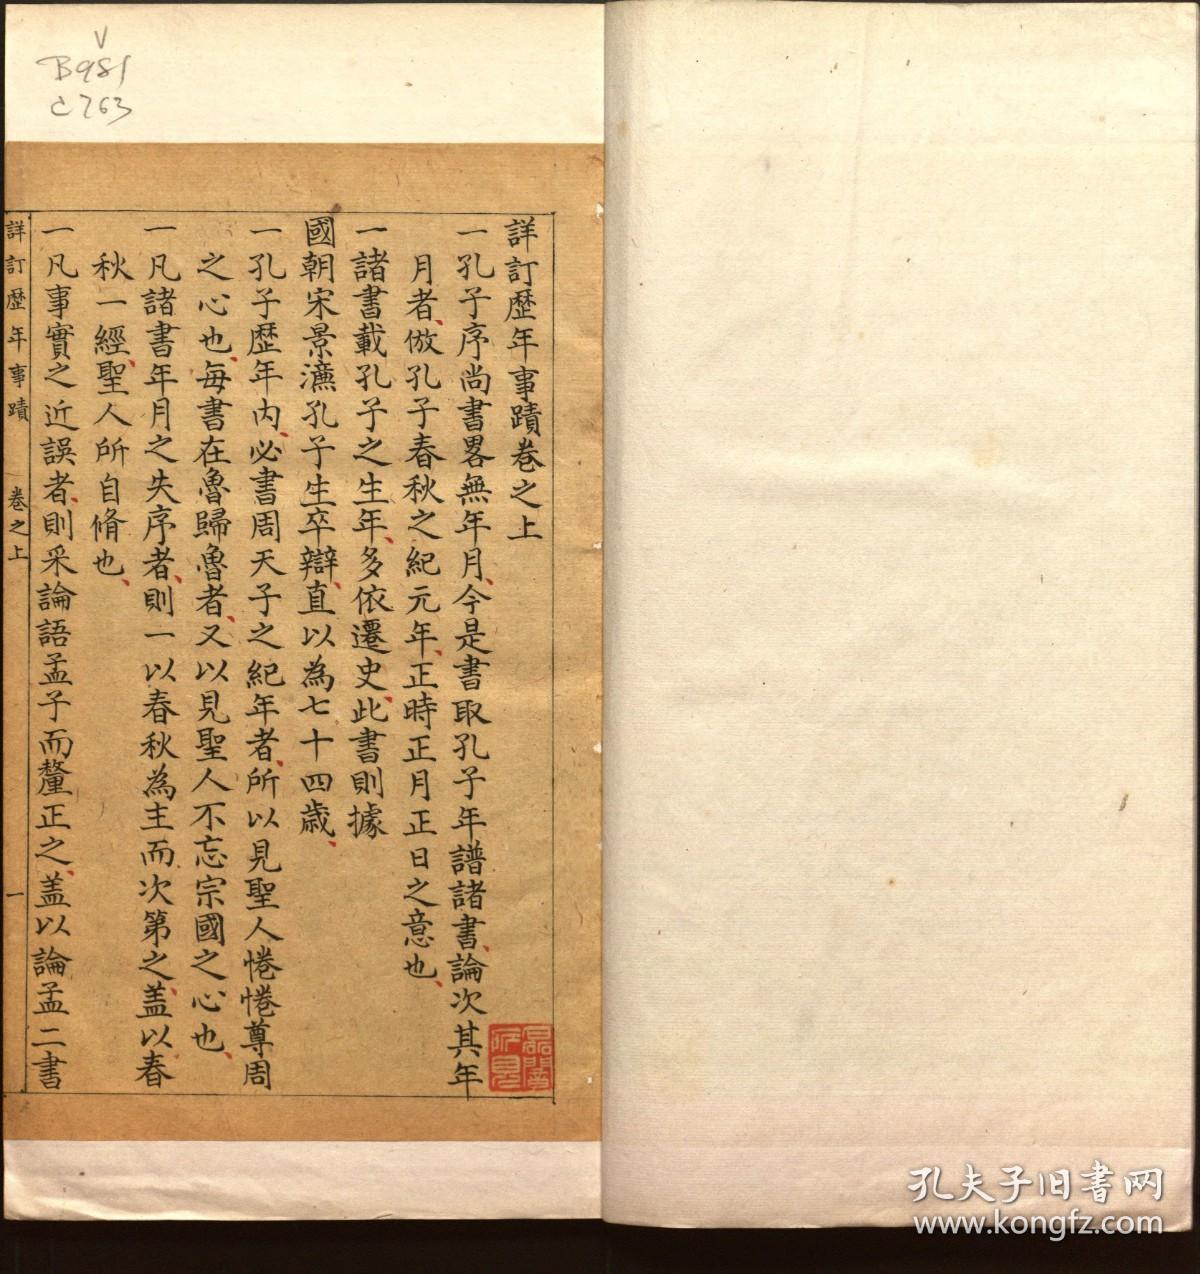 V
B981
C763
詳訂歷年事蹟卷之上
一孔子序尚書畧無年月、今是書取孔子年譜諸書、論次其年
月者、倣孔子春秋之紀元年、正時正月正日之意也、
一諸書載孔子之生年、多依遷史、此書則據
國朝宋景濂孔子生卒辯、直以為七十四歲、
一孔子歷年内、必書周天子之紀年者、所以見聖人惓惓尊周
之心也、每書在魯歸魯者、又以見聖人不忘宗國之心也、
一凡諸書年月之失序者、則一以春秋為主而次第之、盖以春
秋一經、聖人所自脩也、
一凡事實之近誤者、則采論語孟子而釐正之、盖以論孟二書
詳訂歷年事蹟 卷之上 一
孔夫子旧书网
www.kongfz.com